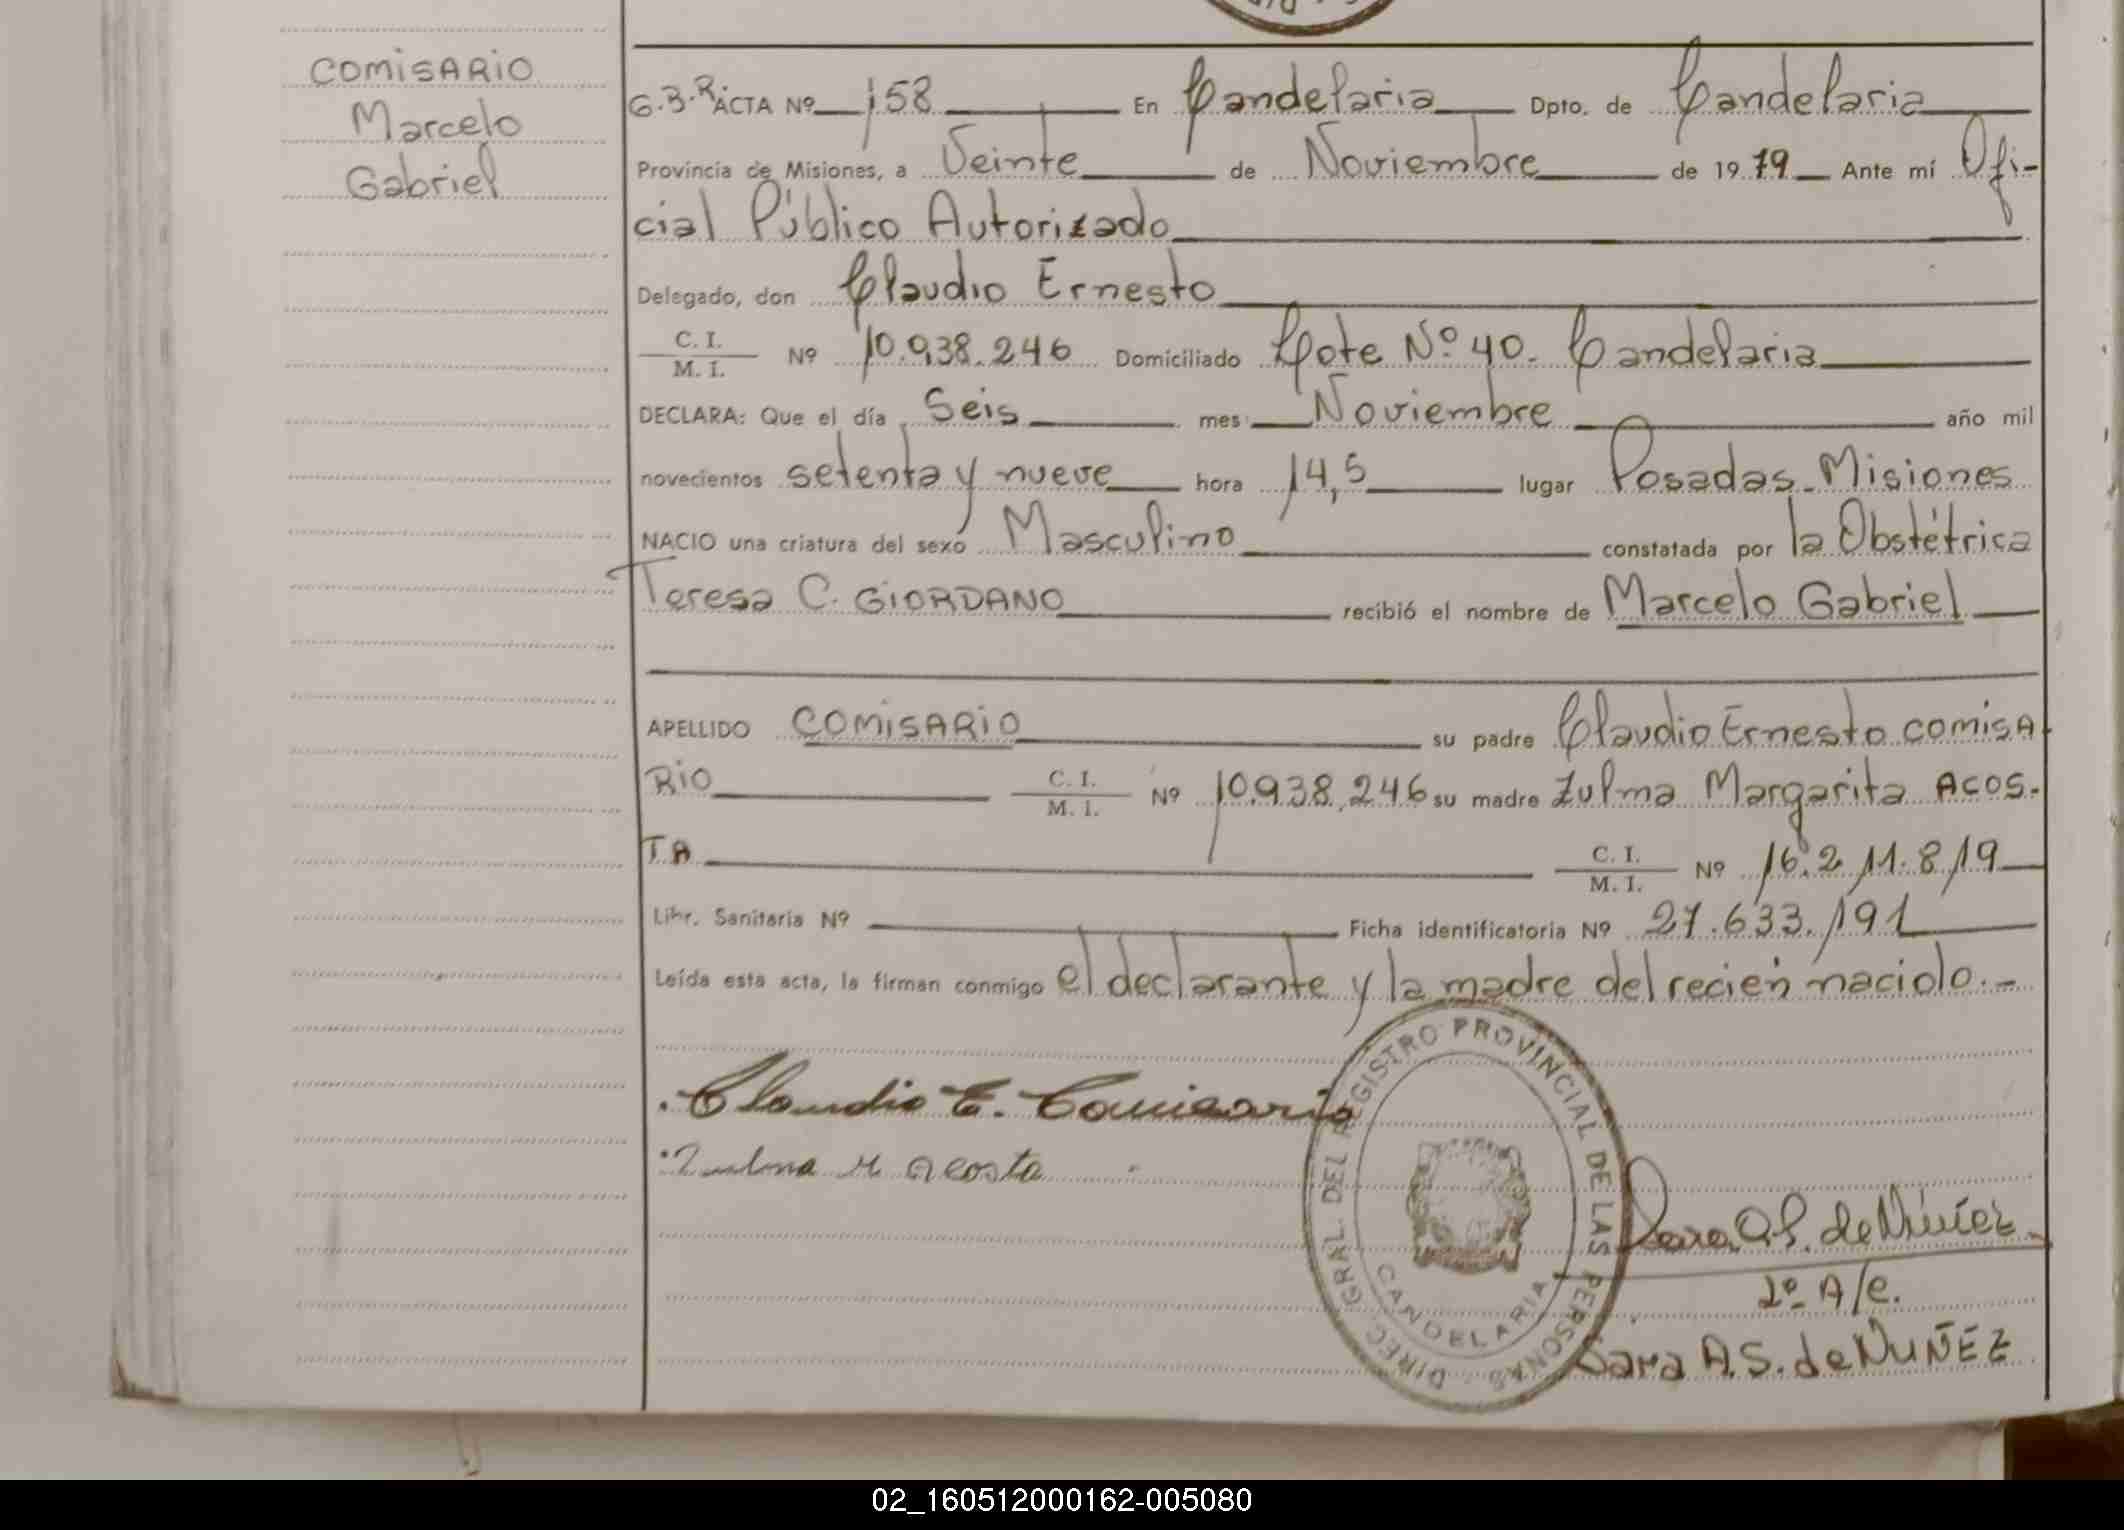 COMISARIO
Marcelo
Gabriel
G.B.R. ACTA Nº 158 En Candelaria Dpto. de Candelaria
Provincia de Misiones, a Veinte de Noviembre de 1979 Ante mí Ofi-
cial Público Autorizado
Delegado, don Claudio Ernesto
C. I. / M. I. Nº 10.938.246 Domiciliado Lote Nº 40. Candelaria
DECLARA: Que el día Seis mes Noviembre año mil
novecientos setenta y nueve hora 14,5 lugar Posadas - Misiones
NACIO una criatura del sexo Masculino constatada por la Obstétrica
Teresa C. GIORDANO recibió el nombre de Marcelo Gabriel
APELLIDO COMISARIO su padre Claudio Ernesto COMISA-
RIO C. I. / M. I. Nº 10.938.246 su madre Zulma Margarita ACOS-
TA C. I. / M. I. Nº 16.211.819
Libr. Sanitaria Nº Ficha identificatoria Nº 27.633.191
Leída esta acta, la firman conmigo el declarante y la madre del recién nacido.-
Claudio E. Comisario
Zulma M Acosta
DIREC. GRAL. DEL REGISTRO PROVINCIAL DE LAS PERSONAS
CANDELARIA
Sara A.S. de Núñez
2º A/e.
Sara A.S. de NUÑEZ
02_160512000162-005080